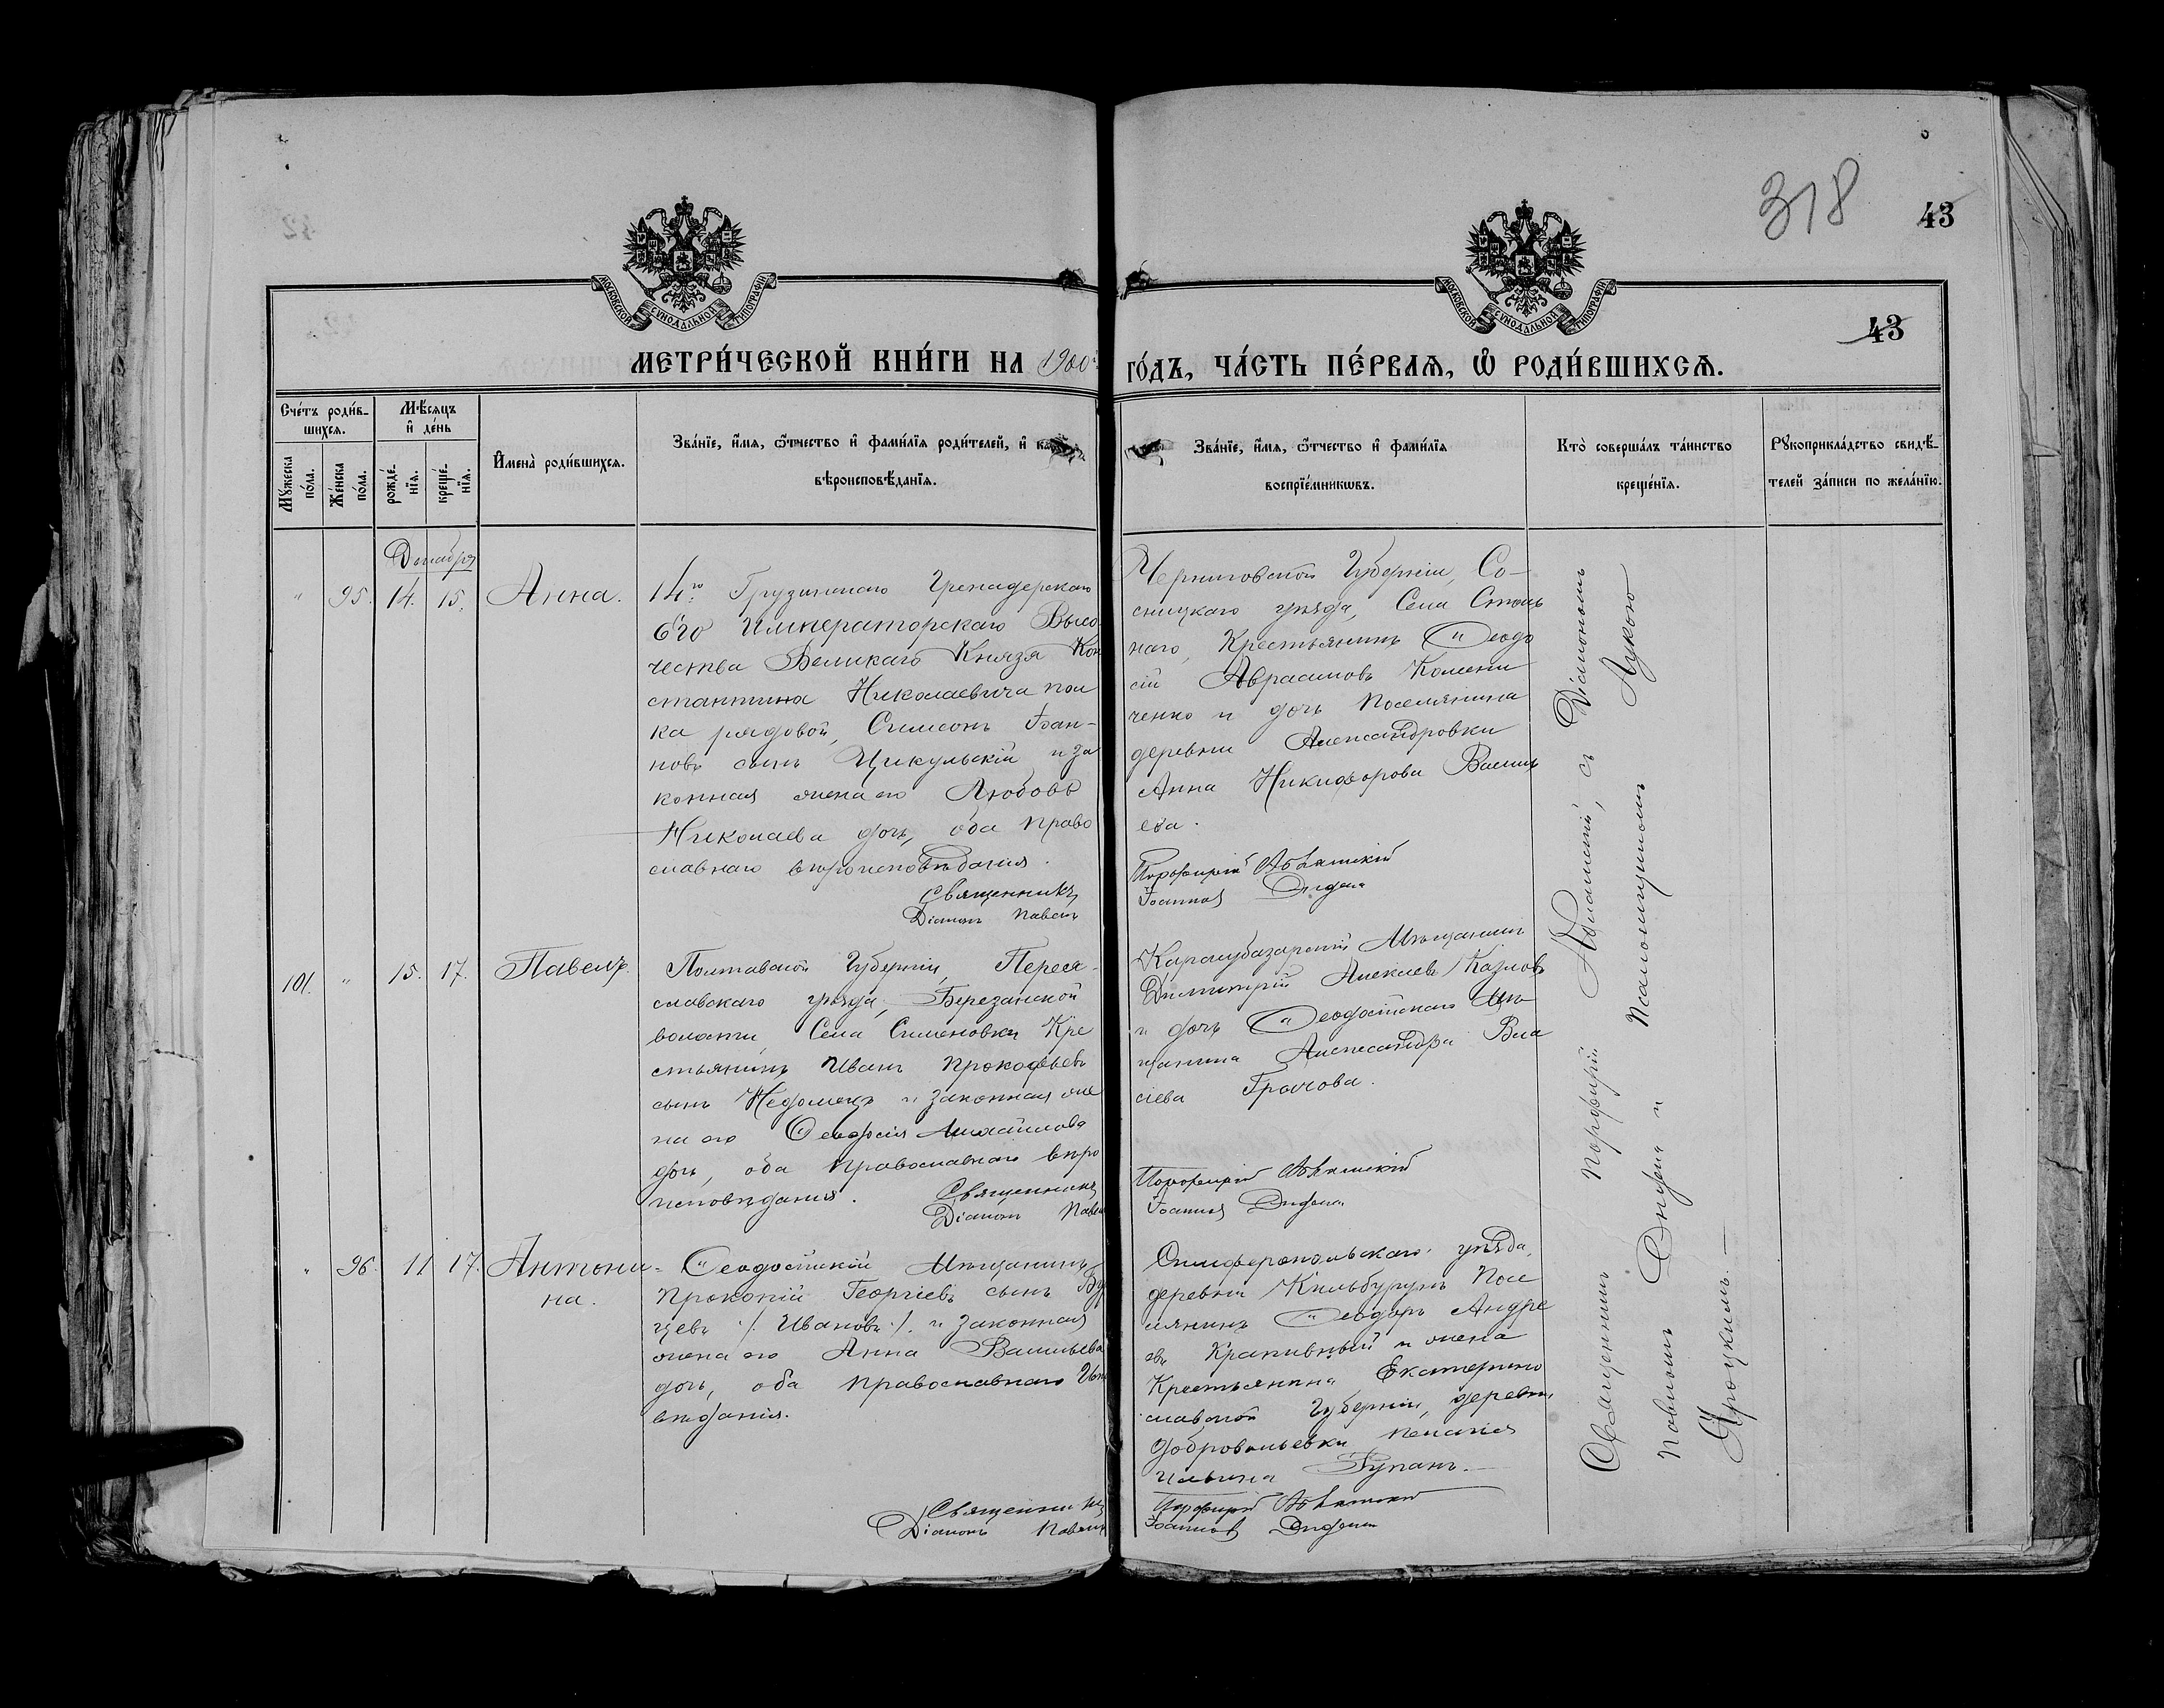 318
43
МОСКОВСКОЙ СѴНОДАЛЬНОЙ ТИПОГРАФІИ
МОСКОВСКОЙ СѴНОДАЛЬНОЙ ТИПОГРАФІИ
43
МЕТРИ́ЧЕСКОЙ КНИ́ГИ НА 1900й
ГО́ДЪ, ЧА́СТЬ ПЕ́РВАѦ, Ѡ҆ РОДИ́ВШИХСѦ.
Сче́тъ роди́в-
шихсѧ.
Мꙋ́жеска по́ла.
Же́нска по́ла.
Мѣ́сѧцъ и҆ де́нь
рожде́-нїѧ.
креще́-нїѧ.
И҆мена̀ роди́вшихсѧ.
Зва́нїе, и҆́мѧ, ѻ҆́тчество и҆ фами́лїѧ роди́телей, и҆
вѣроисповѣ́данїѧ.
Зва́нїе, и҆́мѧ, ѻ҆́тчество и҆ фами́лїѧ
воспрїе́мникѡвъ.
Кто̀ соверша́лъ та́инство
креще́нїѧ.
Рꙋкоприкла́дство свидѣ́-
телей за́писи по жела́нїю.
Декабря
" 95. 14. 15. Анна.
14го Грузинскаго Гренадерскаго
Его Императорскаго Высо
чества Великаго Князя Кон
стантина Николаевича пол
ка рядовой, Симеонъ Іоан-
новъ сынъ Цикульскій и за
конная жена его Любовь
Николаева дочь, оба право
славнаго вѣроисповѣданія.
Священникъ
Діаконъ Павелъ
Черниговской Губерніи, Со-
сницкаго уѣзда, Села
наго, Крестьянинъ Ѳеодо
сій Авраамовъ
ченко и дочь поселянина
деревни Александровки
Анна Никифорова Василь
ева.
Порфирій
Іоанновъ
101. " 15. 17. Павелъ.
Полтавской Губерніи, Перея-
славскаго уѣзда, Березанской
волости, Села Семеновки Кре
стьянинъ Иванъ Прокофьевъ
сынъ и законная же
на его Ѳеодосія Михайлова
дочь, оба православнаго вѣро
исповѣданія.
Священникъ
Діаконъ Павелъ
Карасубазарскій Мѣщанинъ
Димитрій Алексѣевъ Казловъ
и дочь Ѳеодосійскаго Мѣ
щанина Александра Вла
сіева Грачова.
Порфирій
Іоанновъ
" 96. 11 17. Антони-
на.
Ѳеодосійскій Мѣщанинъ
Прокопій Георгіевъ сынъ
цевъ /. Ивановъ ./. и законная
жена его Анна Васильева
дочь, оба православнаго
вѣданія.
Священникъ
Діаконъ Павелъ
Симферопольскаго уѣзда,
деревни Кильбурунъ Посе
лянинъ Ѳеодоръ Андре
евъ Крапивный и жена
Крестьянина Екатерино
славской Губерніи, деревни
Добровольевки Пелагія
Ильина
Порфирій
Іоанновъ
Священникъ Порфирій съ Діакономъ
Павломъ и Псаломщикомъ Лукою
Яроцкимъ.